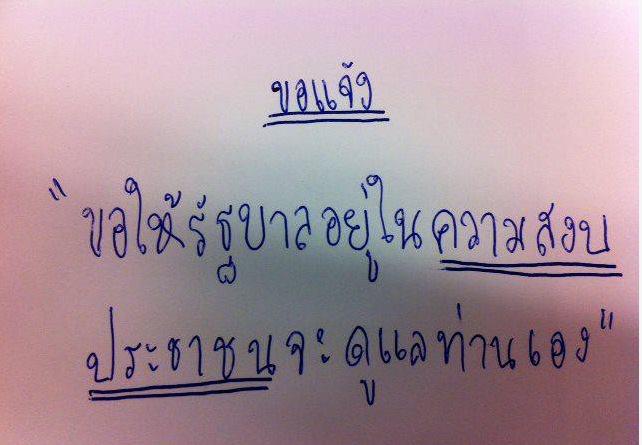 ขอแจ้ง
"ขอให้รัฐบาลอยู่ในความสงบ
ประชาชนจะดูแลท่านเอง"